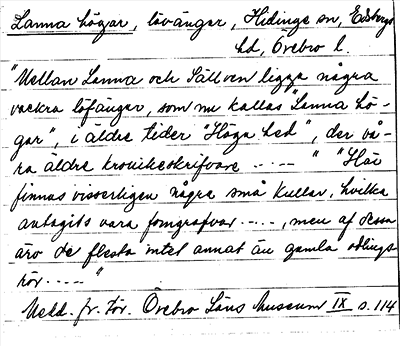 Lanna högar, lövängar, Hidinge sn, Edsbergs
hd, Örebro l.
"Mellan Lanna och Sällven ligga några
vackra löfängar, som nu kallas "Lanna hö-
gar", i äldre tider "Höga hed", der vå-
ra äldre krönikeskrifvare ..... " "Här
finnas visserligen några små kullar, hvilka
antagits vara forngrafvar ...., men af dessa
äro de flesta intet annat än gamla odlings
rör. ...."
Medd. fr. För. Örebro Läns Museum IX s. 114